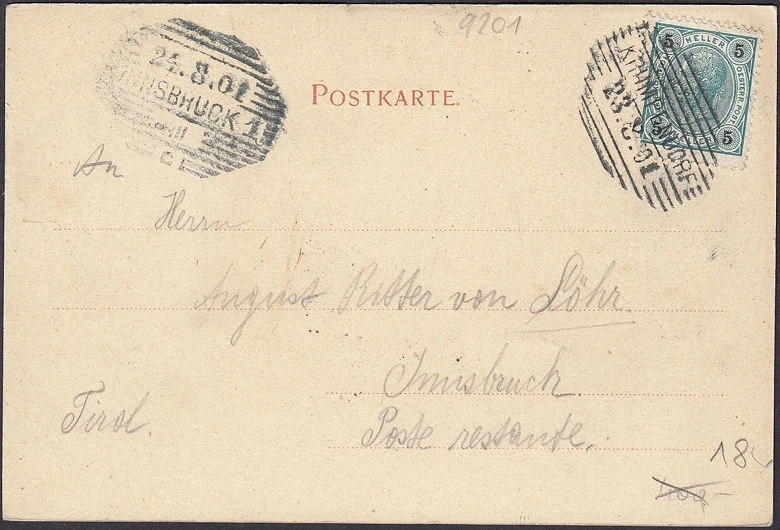 9201
24.8.01
INNSBRUCK 1
POSTKARTE.
5 HELLER 5
OESTERR. POST
5 5
KRUMPENDORF
23.8.01
An
Herrn
August Ritter von Löhr.
Innsbruck
Tirol.
Poste restante.
18